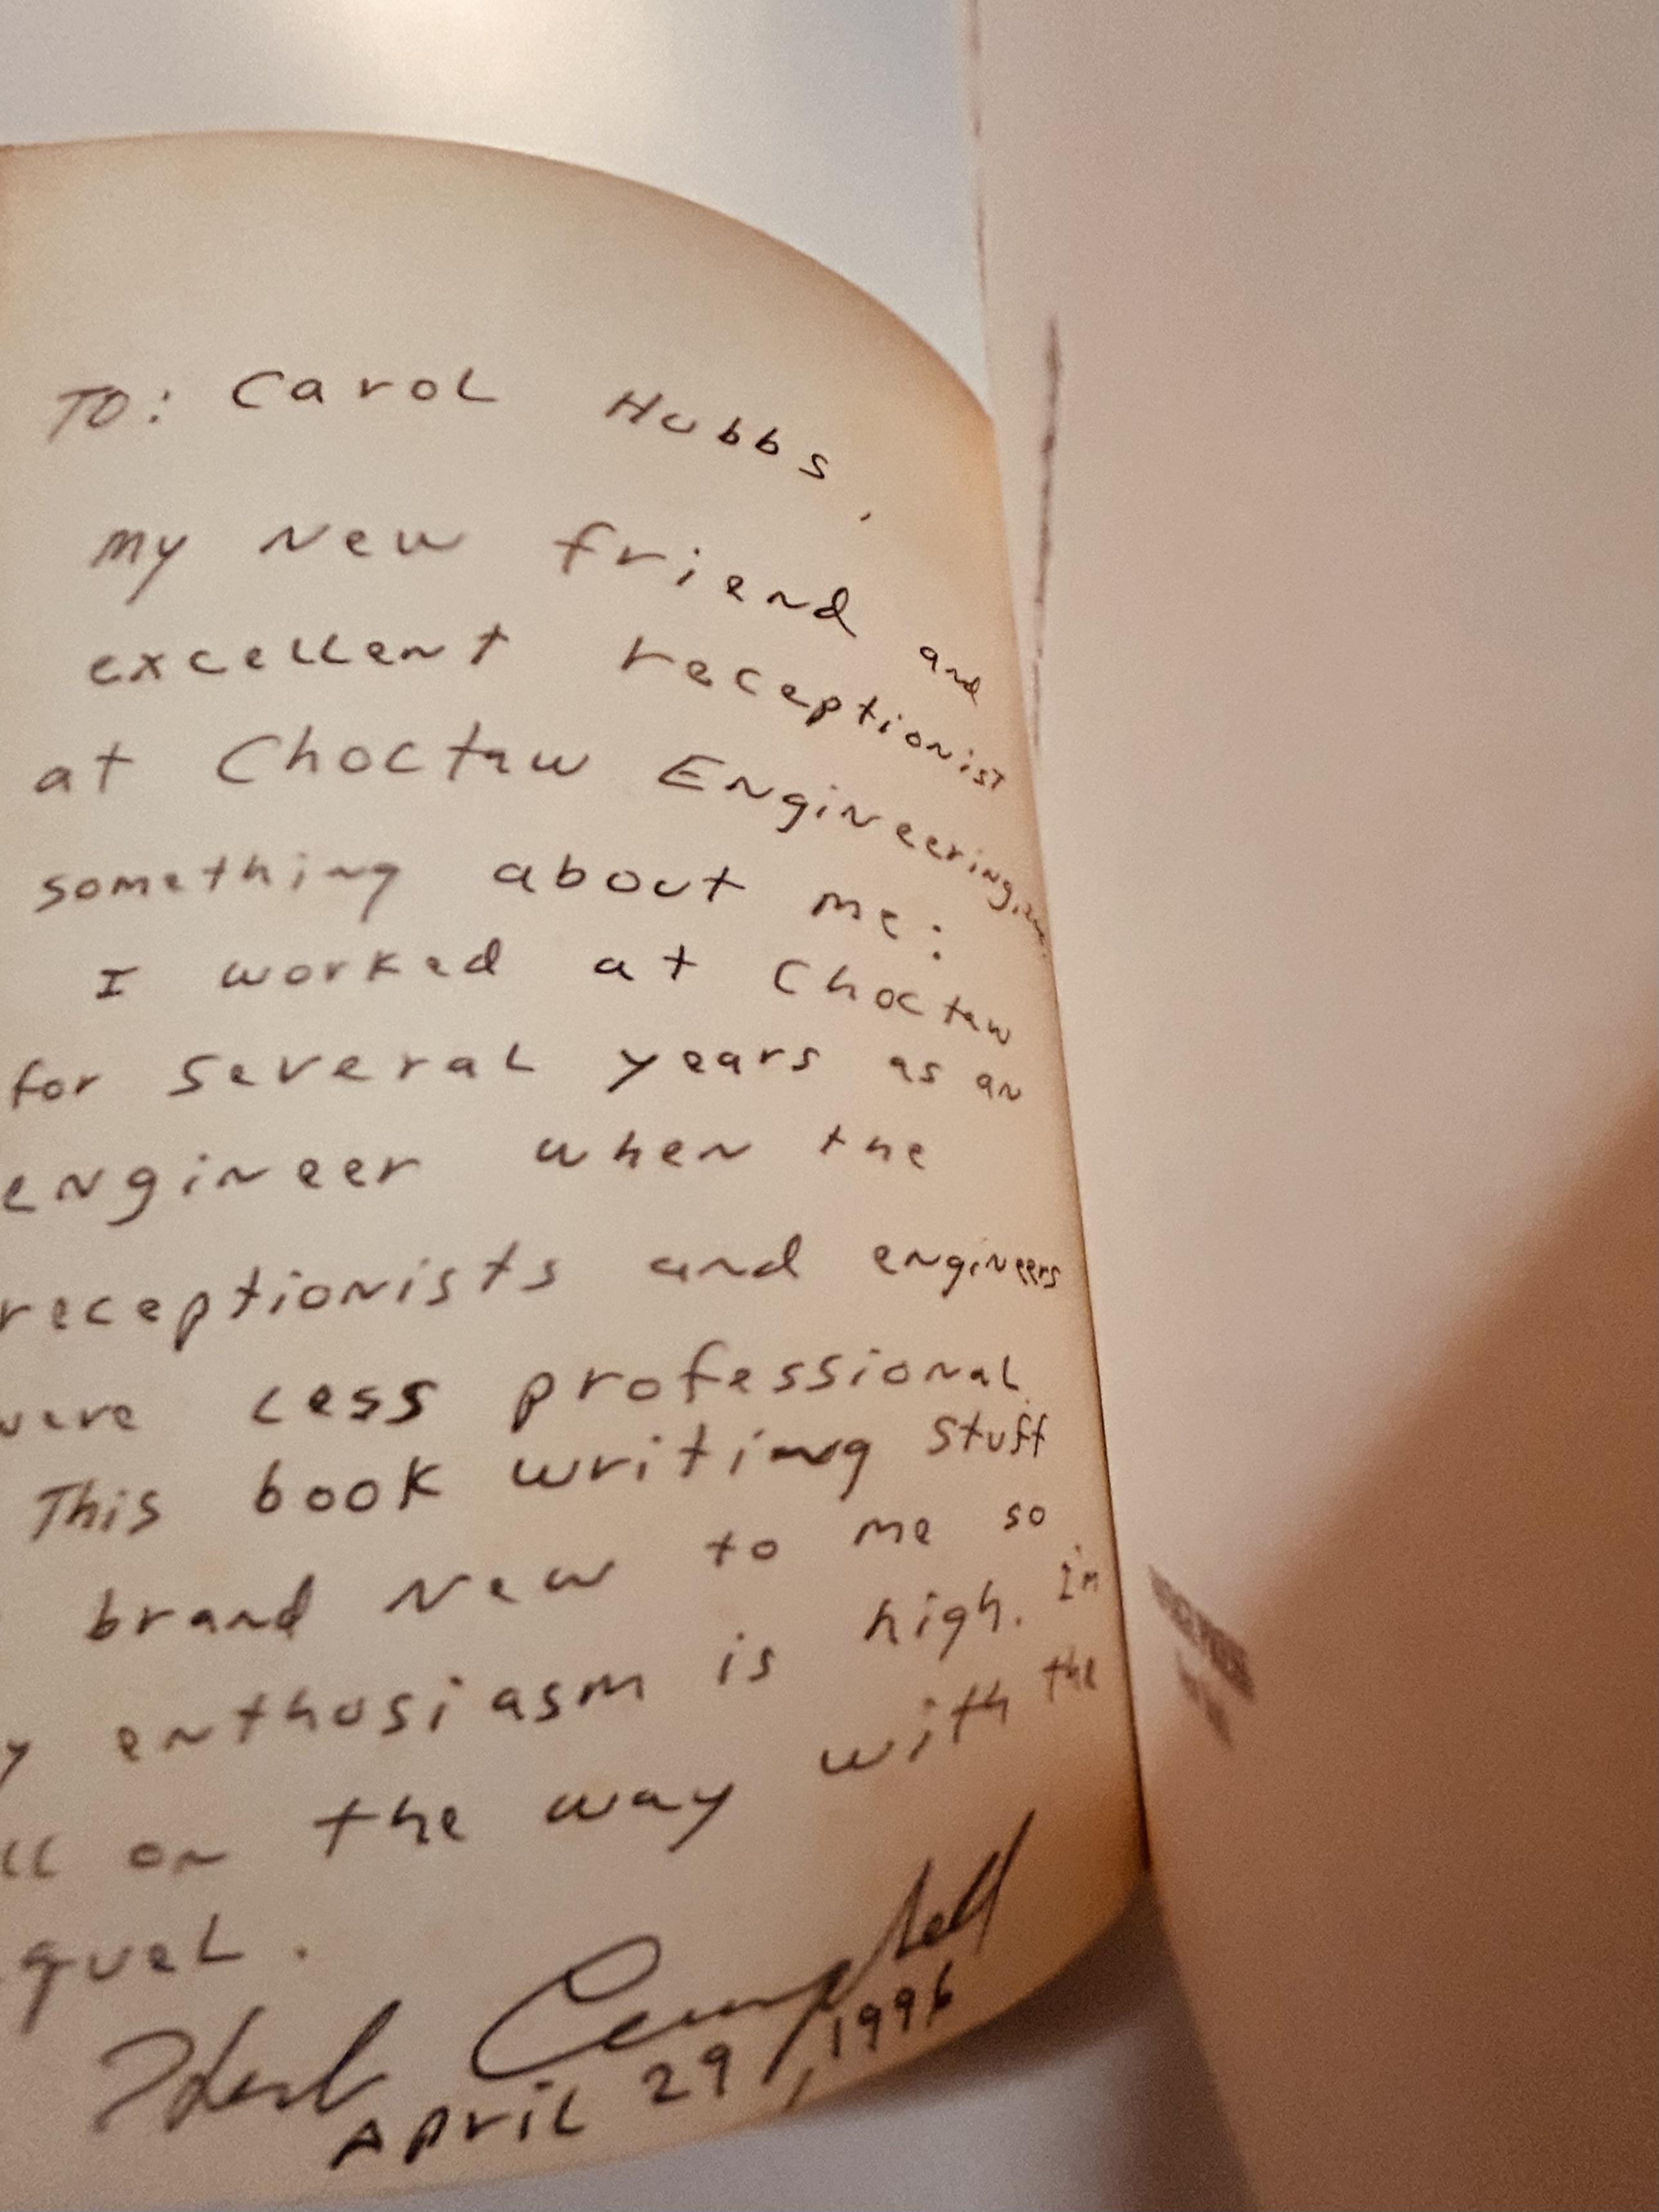 TO: Carol Hubbs,
my New friend and
excellent receptionist
at Choctaw Engineering,
something about me:
I worked at Choctaw
for several years as an
engineer when the
receptionists and engineers
were less professional.
This book writing stuff
brand New to me so
enthusiasm is high. I'm
on the way with the
quel.
Herb Campbell
April 29, 1996